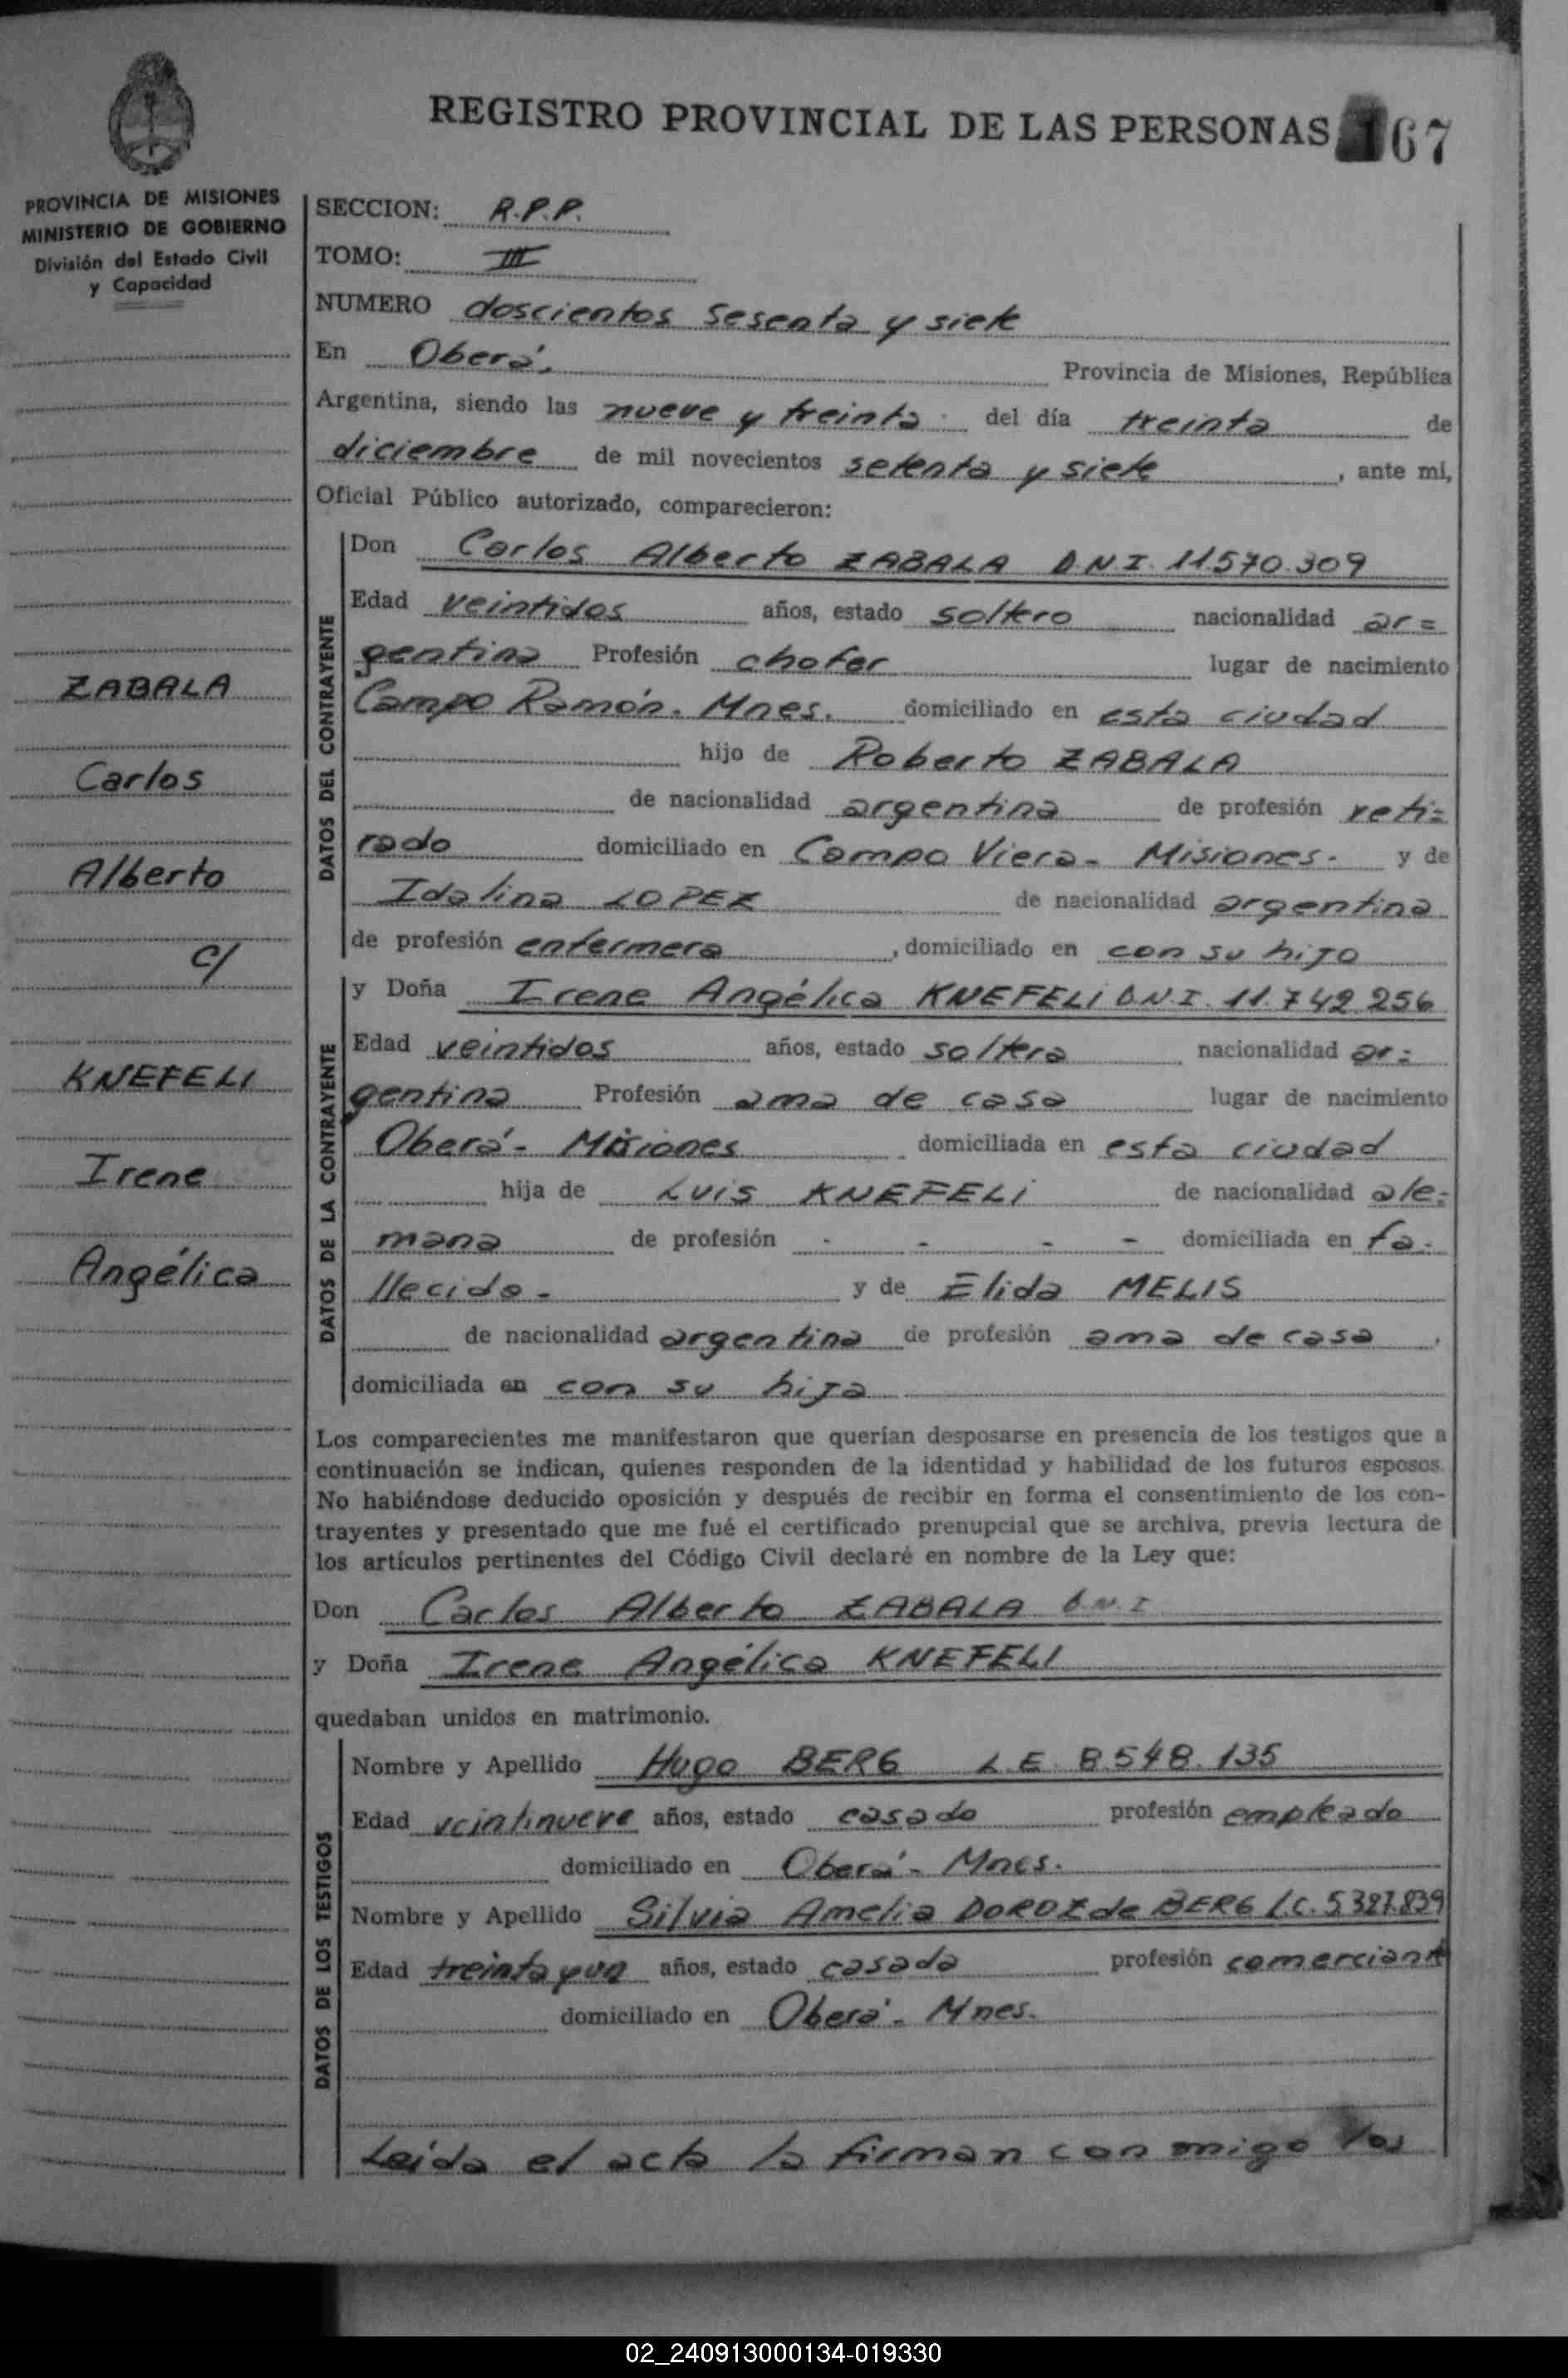 REGISTRO PROVINCIAL DE LAS PERSONAS 167
PROVINCIA DE MISIONES
MINISTERIO DE GOBIERNO
División del Estado Civil
y Capacidad
ZABALA
Carlos
Alberto
c/
KNEFELI
Irene
Angélica
SECCION: R.P.P.
TOMO: III
NUMERO doscientos sesenta y siete
En Oberá, Provincia de Misiones, República
Argentina, siendo las nueve y treinta del día treinta de
diciembre de mil novecientos setenta y siete, ante mi,
Oficial Público autorizado, comparecieron:
DATOS DEL CONTRAYENTE
Don Carlos Alberto ZABALA D.N.I. 11.570.309
Edad veintidos años, estado soltero nacionalidad ar=
gentina Profesión chofer lugar de nacimiento
Campo Ramón. Mnes. domiciliado en esta ciudad
hijo de Roberto ZABALA
de nacionalidad argentina de profesión reti=
rado domiciliado en Campo Viera- Misiones. y de
Idalina LOPEZ de nacionalidad argentina
de profesión enfermera, domiciliado en con su hijo
DATOS DE LA CONTRAYENTE
y Doña Irene Angélica KNEFELI D.N.I. 11.742.256
Edad veintidos años, estado soltera nacionalidad ar=
gentina Profesión ama de casa lugar de nacimiento
Oberá- Misiones domiciliada en esta ciudad
hija de Luis KNEFELI de nacionalidad ale=
mana de profesión - - - - domiciliada en fa-
llecido- y de Elida MELIS
de nacionalidad argentina de profesión ama de casa,
domiciliada en con su hija
Los comparecientes me manifestaron que querían desposarse en presencia de los testigos que a
continuación se indican, quienes responden de la identidad y habilidad de los futuros esposos.
No habiéndose deducido oposición y después de recibir en forma el consentimiento de los con-
trayentes y presentado que me fué el certificado prenupcial que se archiva, previa lectura de
los artículos pertinentes del Código Civil declaré en nombre de la Ley que:
Don Carlos Alberto ZABALA D.N.I
y Doña Irene Angélica KNEFELI
quedaban unidos en matrimonio.
DATOS DE LOS TESTIGOS
Nombre y Apellido Hugo BERG L.E. 8.548.135
Edad veintinueve años, estado casado profesión empleado
domiciliado en Oberá- Mnes.
Nombre y Apellido Silvia Amelia DOROZ de BERG L.C. 5.327.839
Edad treinta y un años, estado casada profesión comerciant
domiciliado en Oberá- Mnes.
Leída el acta la firman conmigo los
02_240913000134-019330